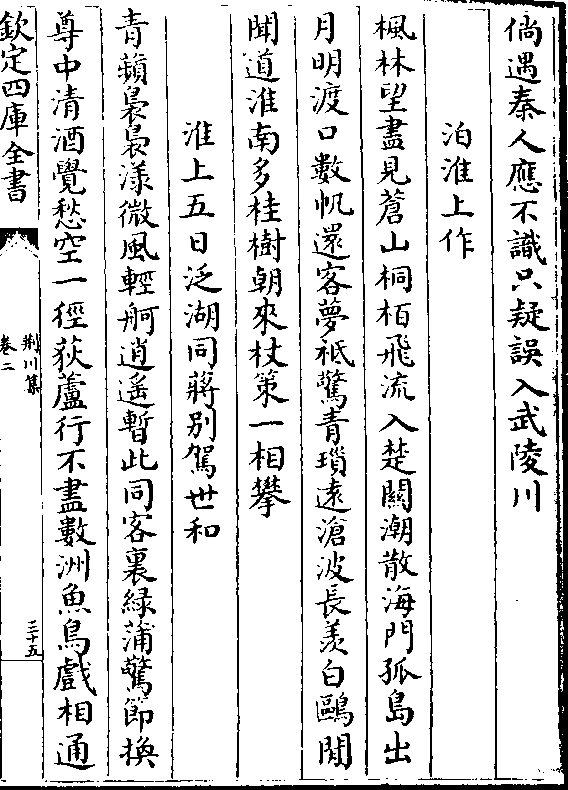 倘遇秦人應不識只疑誤入武陵川
泊淮上作
楓林望盡見蒼山桐栢飛流入楚關潮散海門孤島出
月明渡口數帆還客夢袛驚青瑣遠滄波長羨白鷗閒
聞道淮南多桂樹朝來杖策一相攀
淮上五日泛湖同蔣别駕世和
青蘋裊裊漾微風輕舸逍遥暫此同客裏緑蒲驚節換
尊中清酒覺愁空一徑荻蘆行不盡數洲魚鳥戲相通
欽定四庫全書
荆川集
卷二
三十五